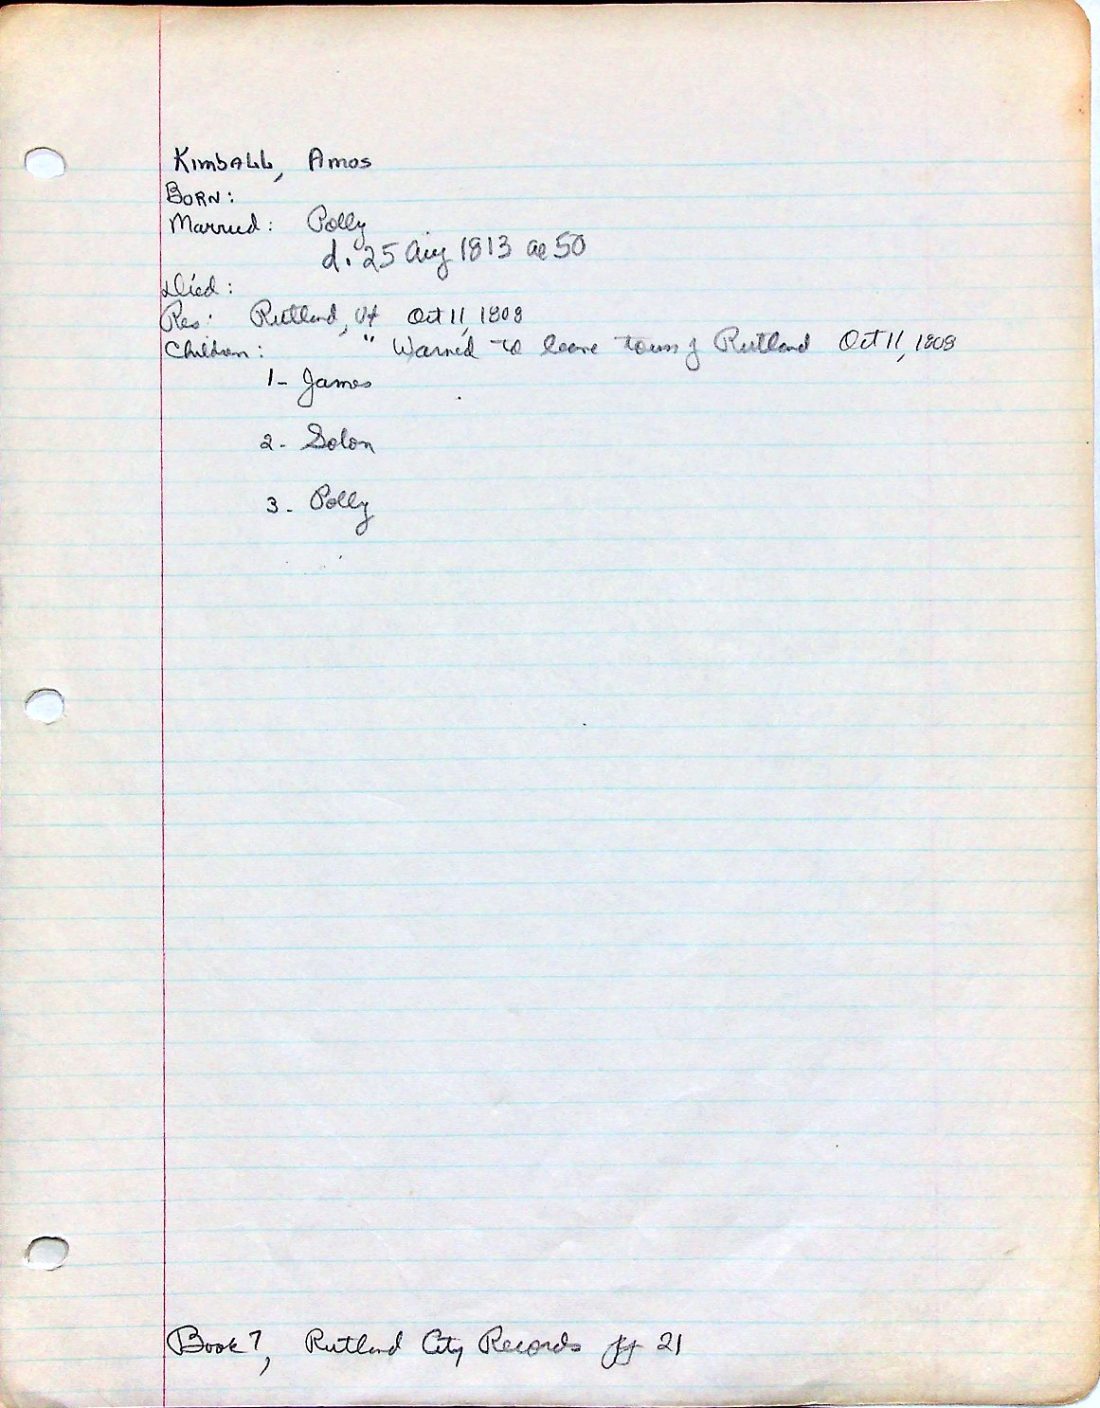 Kimball, Amos
Born:
Married: Polly
d. 25 Aug 1813 ae 50
Died:
Res: Rutland, Vt Oct 11, 1808
Children: " Warned to leave town of Rutland Oct 11, 1808
1- James
2- Solon
3- Polly
Book 7, Rutland City Records pg 21